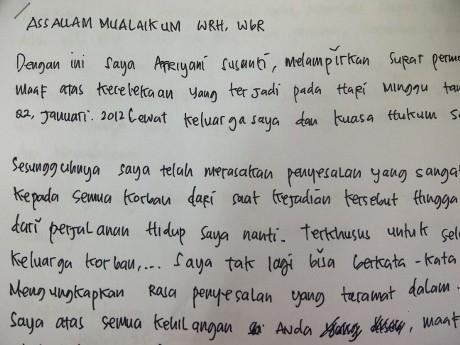 ASSALLAM MUALAIKUM WRH, WBR
Dengan ini saya Afriyani susanti, melampirkan surat perm
maaf atas kecelakaan yang terjadi pada Hari Minggu tan
22, januari. 2012 Lewat keluarga saya dan kuasa Hukum s
Sesungguhnya saya telah merasakan penyesalan yang sangat
Kepada semua korban dari saat Kejadian tersebut Hingga
dari perjalanan Hidup saya nanti. Terkhusus untuk sel
keluarga korban,... Saya tak lagi bisa berkata-kata
Mengungkapkan Rasa penyesalan yang teramat dalam.
Saya atas semua kehilangan Anda, maaf